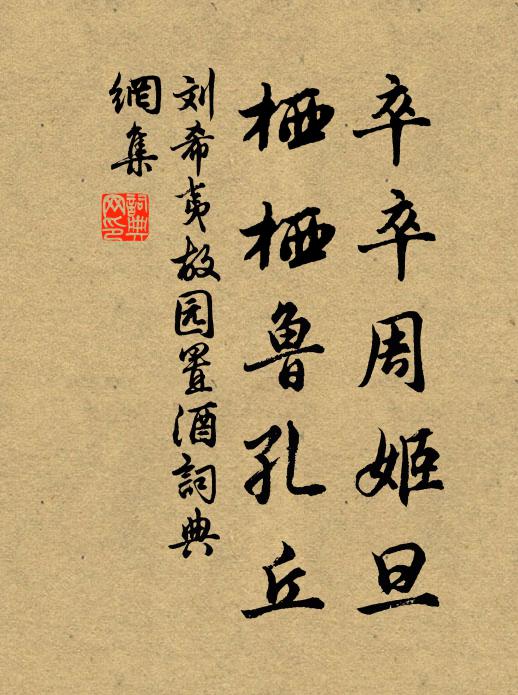 卒卒周姬旦
栖栖鲁孔丘
刘希夷故园置酒詞典
網集
詞典
网印